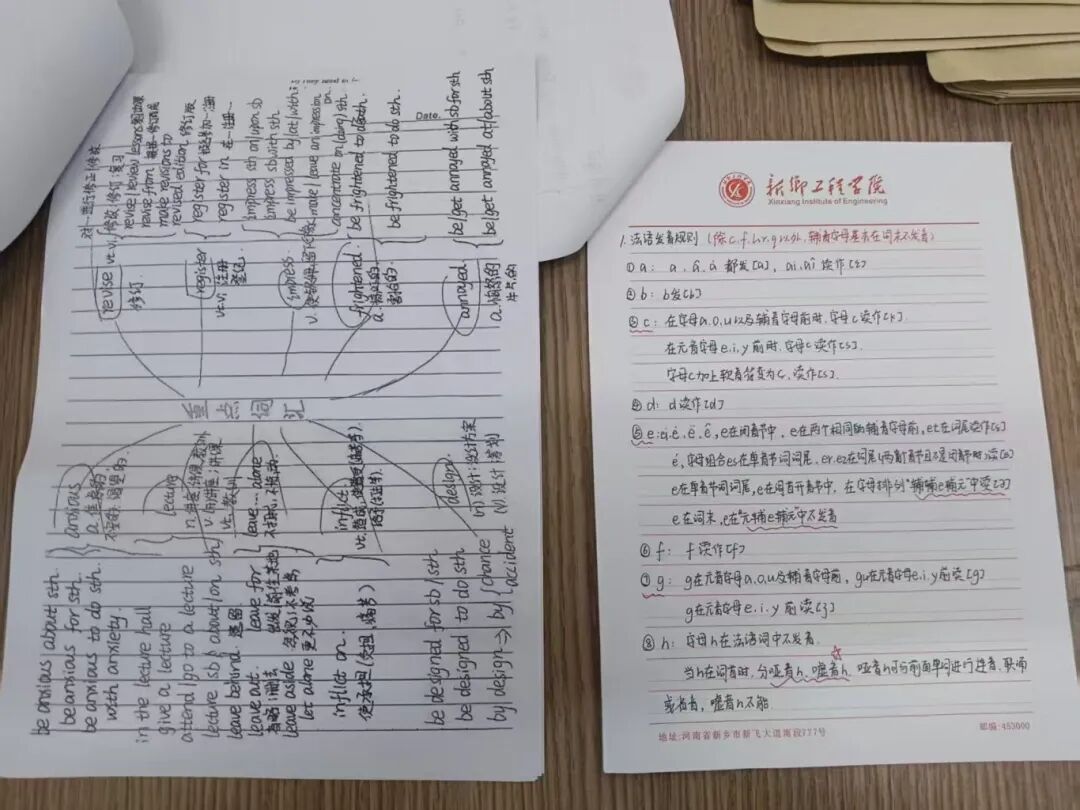 新乡工程学院
Xinxiang Institute of Engineering
1. 法语发音规则 (除c.f.l.r.q以外,辅音字母是末在词末不发音)
① a: a.â.à 都发[a], ai,aî 读作[ɛ]
② b: b发[b]
③ c: 在字母a.o.u以及辅音字母前时,字母c读作[k].
在元音字母e.i.y前时,字母c读作[s].
字母c加上软音符变为ç,读作[s].
④ d: d读作[d]
e在闭音节中, e在两个相同的辅音字母前, et在词尾读作[ɛ]
é,字母组合es在单音节词词尾, er.ez在词尾
e在单音节词词尾,e在词首开音节中, 在字母排列"辅辅e辅元"中读[ə]
e在词末,e在"元辅e辅元"中不发音
⑥ f: f读作[f]
⑦ g: g在元音字母a.o.u及辅音字母前, gu在元音字母e.i.y前读[g]
g在元音字母e.i.y前读[ʒ]
⑧ h: 字母h在法语词中不发音.
当h在词首时,分哑音h、嘘音h. 哑音h可与前面单词进行连音、联诵
或省音, 嘘音h不能.
邮编:453000
地址:河南省新乡市新飞大道南段777号
Date.
重点词汇
revise
修订
vt.vi. 修改,修订;复习
revise / review lessons
revise from
make revisions to
revised edition 修订版
对…进行修正/修改
register
vt.vi. 注册
登记
register for
register in 在…注册
impress
impress sth on/upon sb
impress sb with sth.
be impressed by/at/with
make / leave an impression on
concentrate on (doing) sth.
frightened
a.
害怕的.
be frightened to death.
be frightened to do sth.
annoyed
a.恼怒的
生气的
be/get annoyed with sb for sth
be/get annoyed at/about sth
anxious
a. 焦急的,
不安的,渴望的.
be anxious about sth.
be anxious for sth.
be anxious to do sth.
with anxiety.
lecture
n. 讲座,讲课,教训
v. 开讲座;讲课
vt. 教训
in the lecture hall
give a lecture
attend / go to a lecture
lecture sb about/on sth
leave...alone
不打扰,不惊动.
leave behind.
leave out.
leave for
leave aside
let alone 更不必说
inflict
inflict on.
使承担(
design
(n) 设计;设计方案
(v) 设计;筹划
be designed for sb/sth
be designed to do sth
by design => by chance
accident